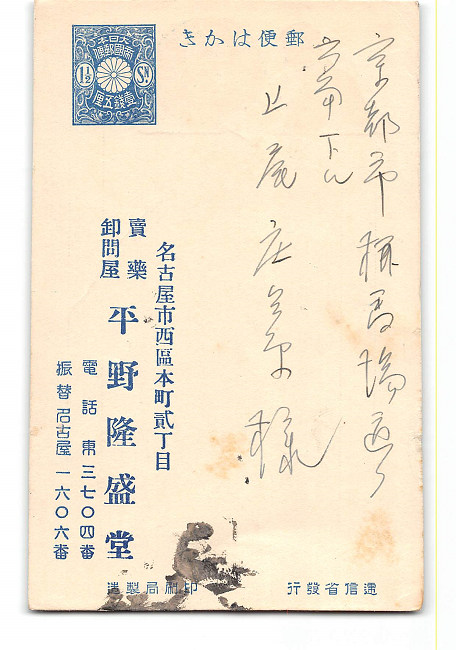 郵便はかき
大日本
帝國郵便
1½ Sn.
壹錢五厘
京都市柳馬場通り
上尾庄兵衛様
名古屋市西區本町貳丁目
賣藥
卸問屋
平野隆盛堂
電話東三七〇四番
振替名古屋一六〇六番
遞信省發行
印刷局製造